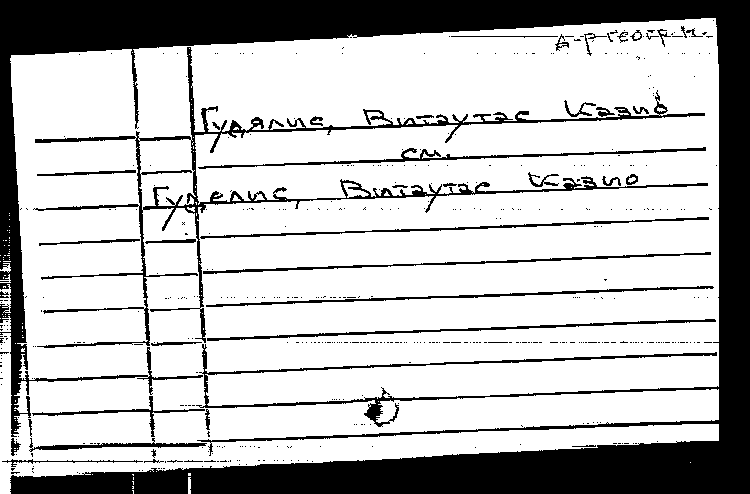 д-р геогр. н.
Гудялис, Витаутас Казио
см.
Гуделис, Витаутас Казио